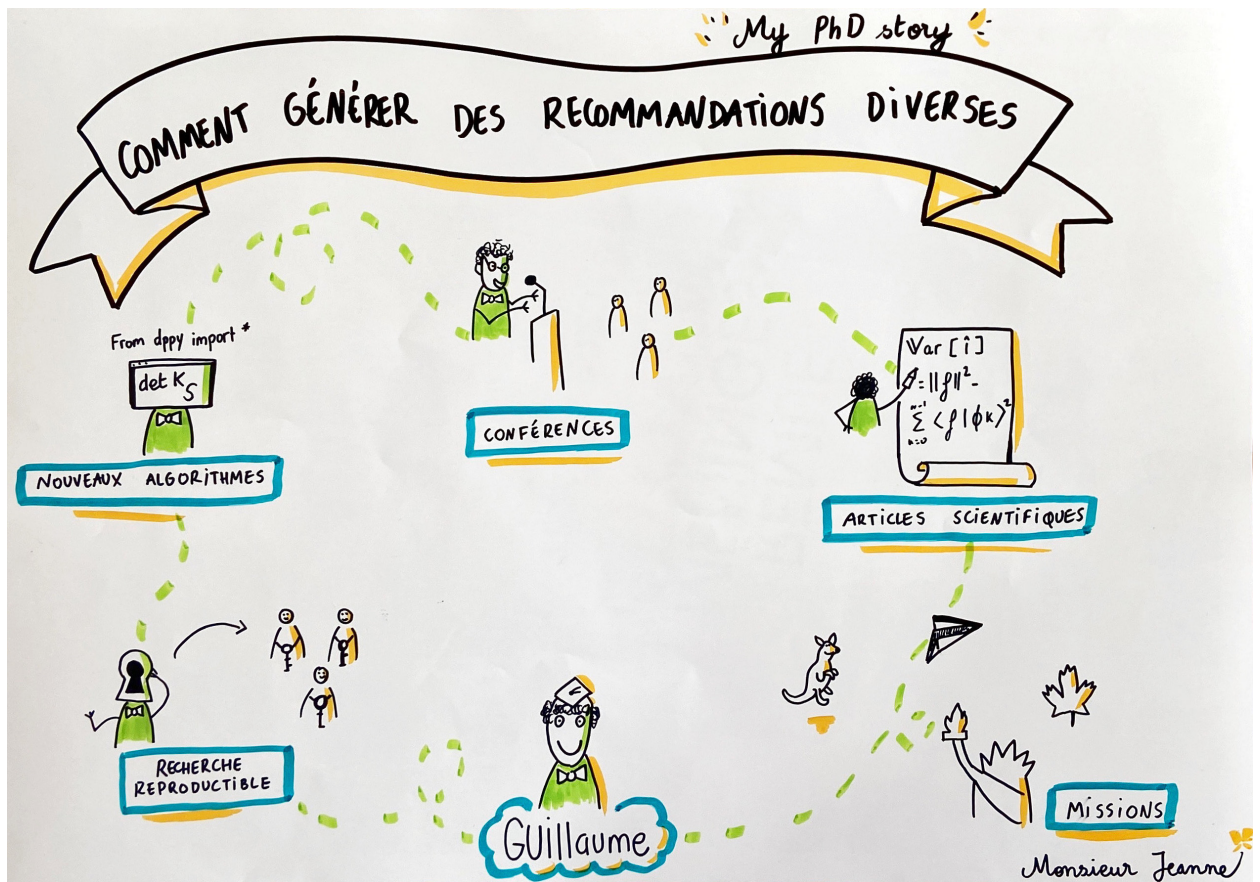 My PhD story
COMMENT GÉNÉRER DES RECOMMANDATIONS DIVERSES
From dppy import *
det K_S
NOUVEAUX ALGORITHMES
CONFÉRENCES
Var [î]
= ||f||² -
n-1
Σ <f|ϕk>²
k=0
ARTICLES SCIENTIFIQUES
RECHERCHE
REPRODUCTIBLE
GUillaume
MISSIONS
Monsieur Jeanne